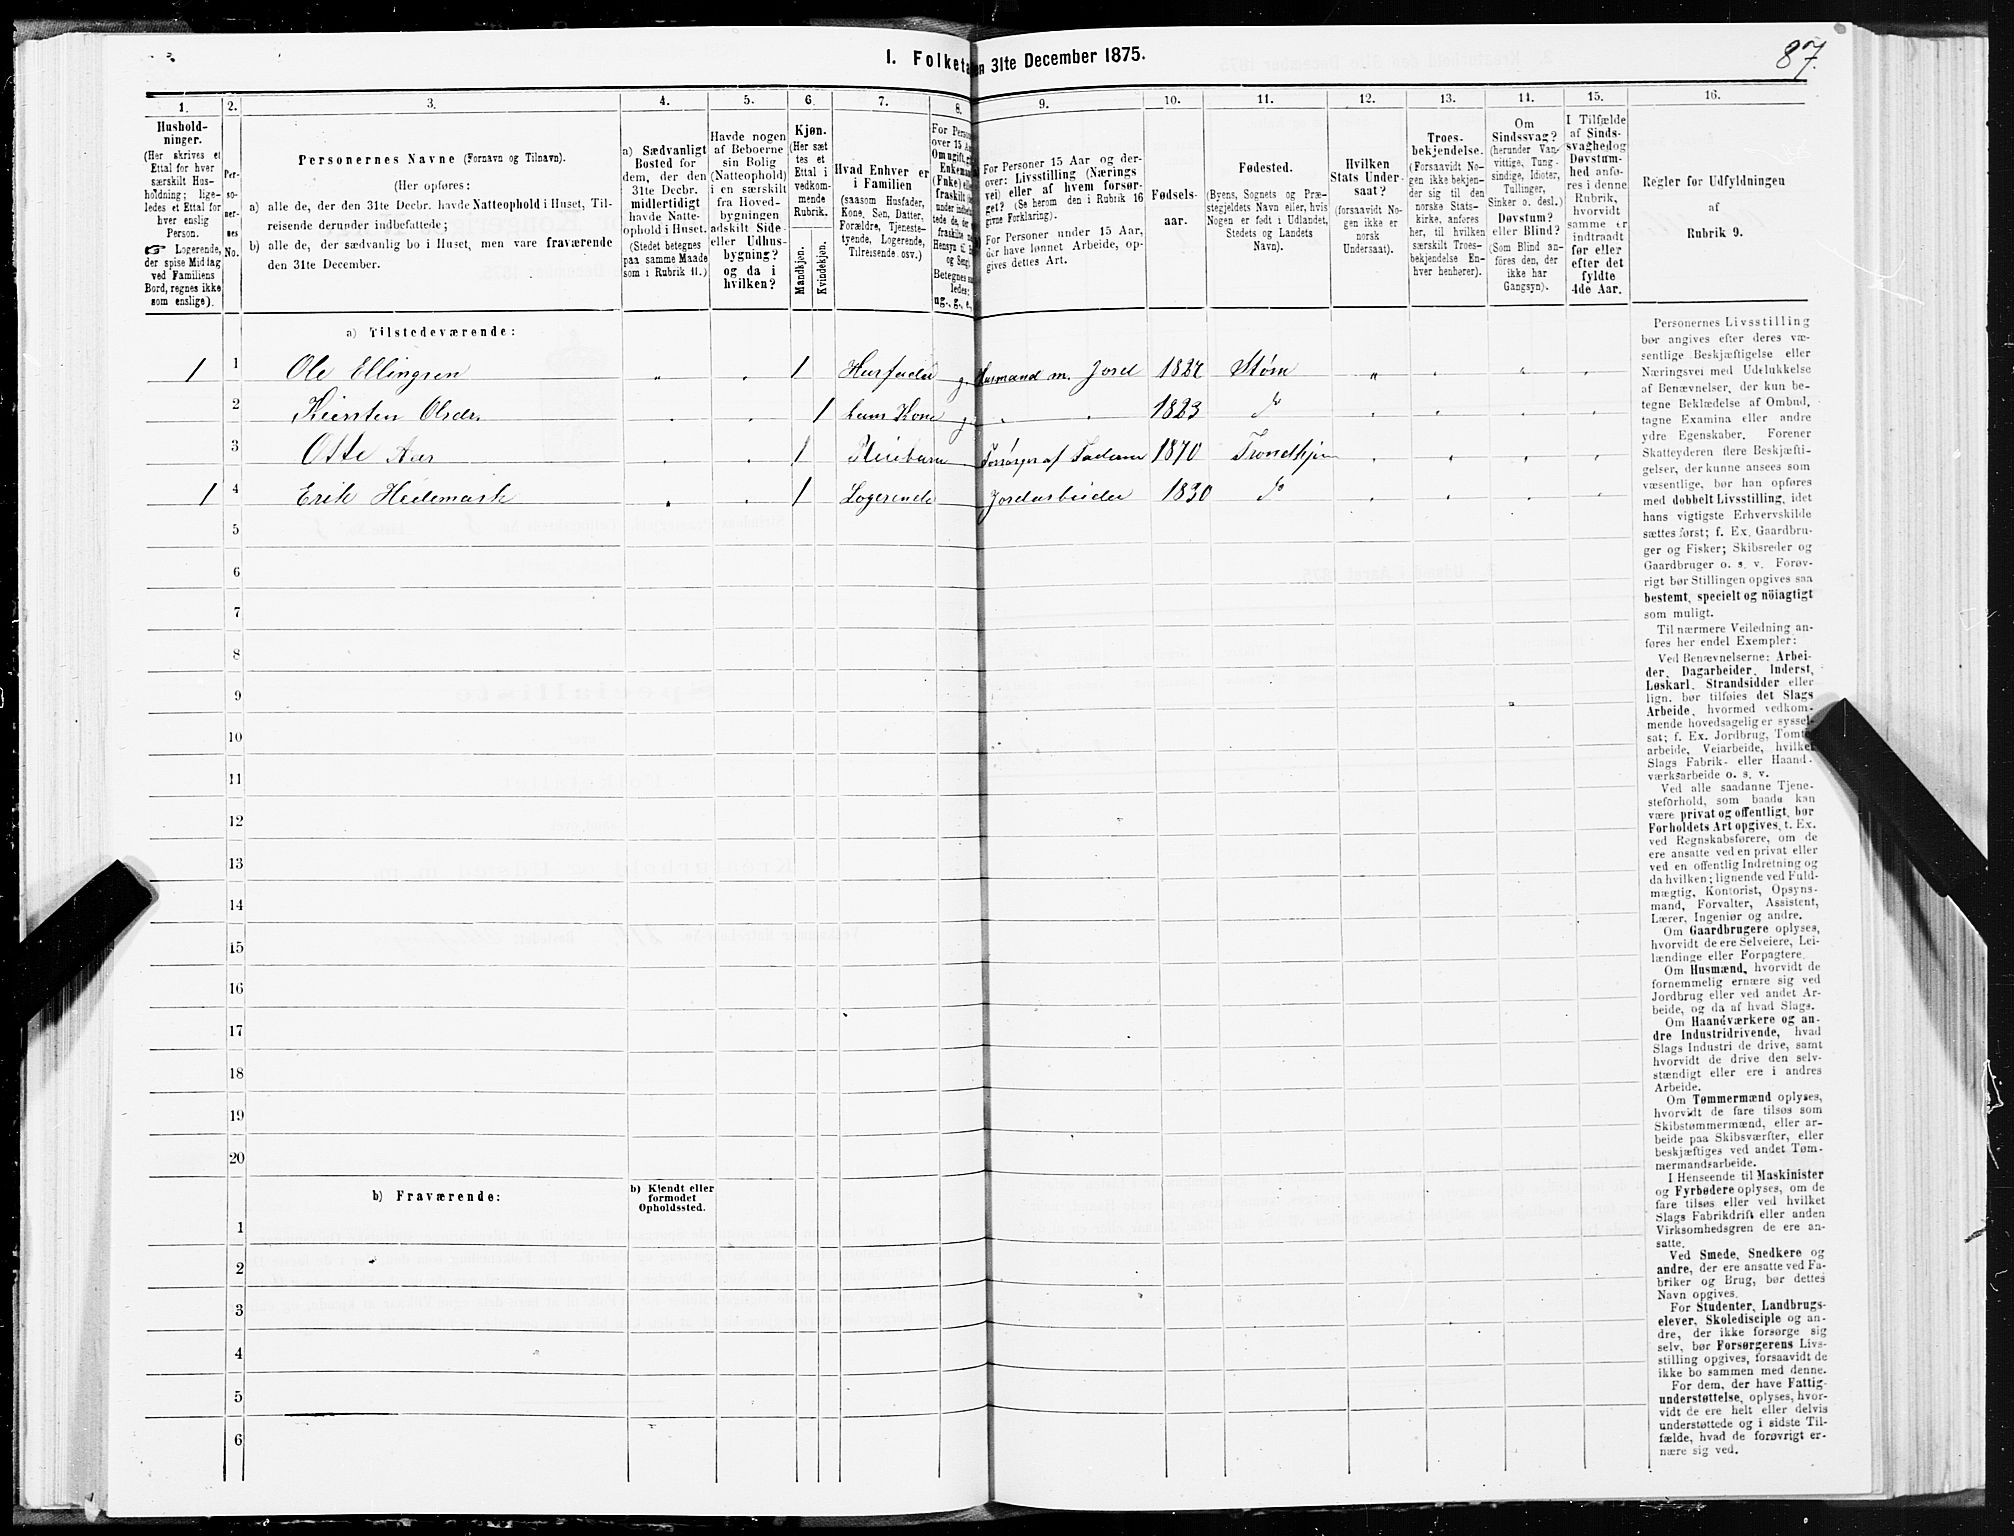 I. Folketa en 31te December 1875.
87.
1. 2. 3. 4. 5. 6. 7. 8. 9. 10. 11. 12. 13. 14. 15. 16.
Hushold-
ninger.
(Her skrives et
Ettal for hver
særskilt Hus-
holdning; lige-
ledes et Ettal for
hver enslig
Person.
☞ Logerende,
der spise Middag
ved Familiens
Bord, regnes ikke
som enslige).
Per-
so-
ner-
nes
No.
Personernes Navne (Fornavn og Tilnavn).
(Her opføres:
a) alle de, der den 31te Decbr. havde Natteophold i Huset, Til-
reisende derunder indbefattede;
b) alle de, der sædvanlig bo i Huset, men vare fraværende
den 31te December.
a) Sædvanligt
Bosted for
dem, der den
31te Decbr.
midlertidigt
havde Natte-
ophold i Huset.
(Stedet betegnes
paa samme Maade
som i Rubrik 11.)
Havde nogen
af Beboerne
sin Bolig
(Natteophold)
i en særskilt
fra Hoved-
bygningen
adskilt Side-
eller Udhus-
bygning?
og da i
hvilken?
Kjøn.
(Her sæt
tes et
Ettal i
vedkom-
mende
Rubrik.
Mandkjøn.
Kvindekjøn.
Hvad Enhver er
i Familien
(saasom Husfader,
Kone, Søn, Datter,
Forældre, Tjeneste-
tyende, Logerende,
Tilreisende osv.)
For Perso
over 15 Aar
Om ugift, gi
Enkema
(Enke) el
fraskilt
under indbefa
tede de, de
fraskilte
Hensyn ti
og Seng)
Betegnes sa
ledes:
ug., g., e.,
For Personer 15 Aar og der-
over: Livsstilling (Nærings
vei) eller af hvem forsør-
get? (Se herom den i Rubrik 16
givne Forklaring).
For Personer under 15 Aar,
der have lønnet Arbeide, op-
gives dettes Art.
Fødsels-
aar.
Fødested.
(Byens, Sognets og Præ-
stegjeldets Navn eller, hvis
Nogen er født i Udlandet,
Stedets og Landets
Navn).
Hvilken
Stats Under-
saat?
(forsaavidt No-
gen ikke er
norsk
Undersaat).
Troes-
bekjendelse.
(Forsaavidt No-
gen ikke bekjen-
der sig til den
norske Stats-
kirke, anføres
her, til hvilken
særskilt Troes-
bekjendelse En-
hver henhører).
Om
Sindssvag?
(herunder Van-
vittige, Tung-
sindige, Idioter,
Tullinger,
Sinker o. desl.)
Døvstum?
eller Blind?
(Som Blind an-
føres den, der
ikke har
Gangsyn).
I Tilfælde
af Sinds-
svaghed og
Døvstum-
hed anfø-
res i denne
Rubrik,
hvorvidt
samme er
indtraadt
før eller
efter det
fyldte
4de Aar.
Regler for Udfyldningen
af
Rubrik 9.
a) Tilstedeværende:
1 1 Ole Ellingsen " . 1 Husfader g. Husmand m. Jord 1824 Støren " . " .
2 Kiersten Olsdr. . . 1 hans Kone g. . . 1823 do . . . .
3 Otte Aas . . 1 Pleiebarn Forsørges af Faderen 1870 Trondhjem . . . .
1 4 Erik Hedemark " . 1 Logerende Jordarbeider 1830 do . . . .
5
6
7
8
9
10
11
12
13
14
15
16
17
18
19
20
b) Fraværende:
b) Kjendt eller
formodet
Opholdssted.
1
2
3
4
5
6
Personernes Livsstilling
bør angives efter deres væ-
sentlige Beskjæftigelse eller
Næringsvei med Udelukkelse
af Benævnelser, der kun be-
tegne Beklædelse af Ombud,
tagne Examina eller andre
ydre Egenskaber. Forener
Skatteyderen flere Beskjæfti-
gelser, der kunne ansees som
væsentlige, bør han opføres
med dobbelt Livsstilling, idet
hans vigtigste Erhvervskilde
sættes først; f. Ex. Gaardbru-
ger og Fisker; Skibsreder og
Gaardbruger o. s. v. Forøv-
rigt bør Stillingen opgives saa
bestemt, specielt og nöiagtigt
som muligt.
Til nærmere Veiledning an-
føres her endel Exempler:
Ved Benævnelserne: Arbei-
der, Dagarbeider, Inderst,
Løskarl, Strandsidder eller
lign. bør tilføies det Slags
Arbeide, hvormed vedkom-
mende hovedsagelig er syssel-
sat; f. Ex. Jordbrug, Tomte-
arbeide, Veiarbeide, hvilket
Slags Fabrik- eller Haand-
værksarbeide o. s. v.
Ved alle saadanne Tjene-
steforhold, som baade kan
være privat og offentligt, bør
Forholdets Art opgives, t. Ex.
ved Regnskabsførere, om de
ere ansatte ved en privat eller
ved en offentlig Indretning og
da hvilken; lignende ved Fuld-
mægtig, Kontorist, Opsyns-
mand, Forvalter, Assistent,
Lærer, Ingeniør og andre.
Om Gaardbrugere oplyses,
hvorvidt de ere Selveiere, Lei-
lændinge eller Forpagtere.
Om Husmænd, hvorvidt de
fornemmelig ernære sig ved
Jordbrug eller ved andet Ar-
beide, og da af hvad Slags.
Om Haandværkere og an-
dre Industridrivende, hvad
Slags Industri de drive, samt
hvorvidt de drive den selv-
stændigt eller ere i andres
Arbeide.
Om Tømmermænd oplyses,
hvorvidt de fare tilsøs som
Skibstømmermænd, eller ar-
beide paa Skibsværfter, eller
beskjæftiges ved andet Tøm-
mermandsarbeide.
I Henseende til Maskinister
og Fyrbødere oplyses, om de
fare tilsøs eller ved hvilket
Slags Fabrikdrift eller anden
Virksomhedsgren de ere an-
satte.
Ved Smede, Snedkere og
andre, der ere ansatte ved Fa-
briker og Brug, bør dettes
Navn opgives.
For Studenter, Landbrugs-
elever, Skoledisciple og an-
dre, der ikke forsørge sig
selv, bør Forsørgerens Livs-
stilling opgives, forsaavidt de
ikke bo sammen med denne.
For dem, der have Fattig-
understøttelse, oplyses, hvor-
vidt de ere helt eller delvis
understøttede og i sidste Til-
fælde, hvad de forøvrigt er-
nære sig ved.